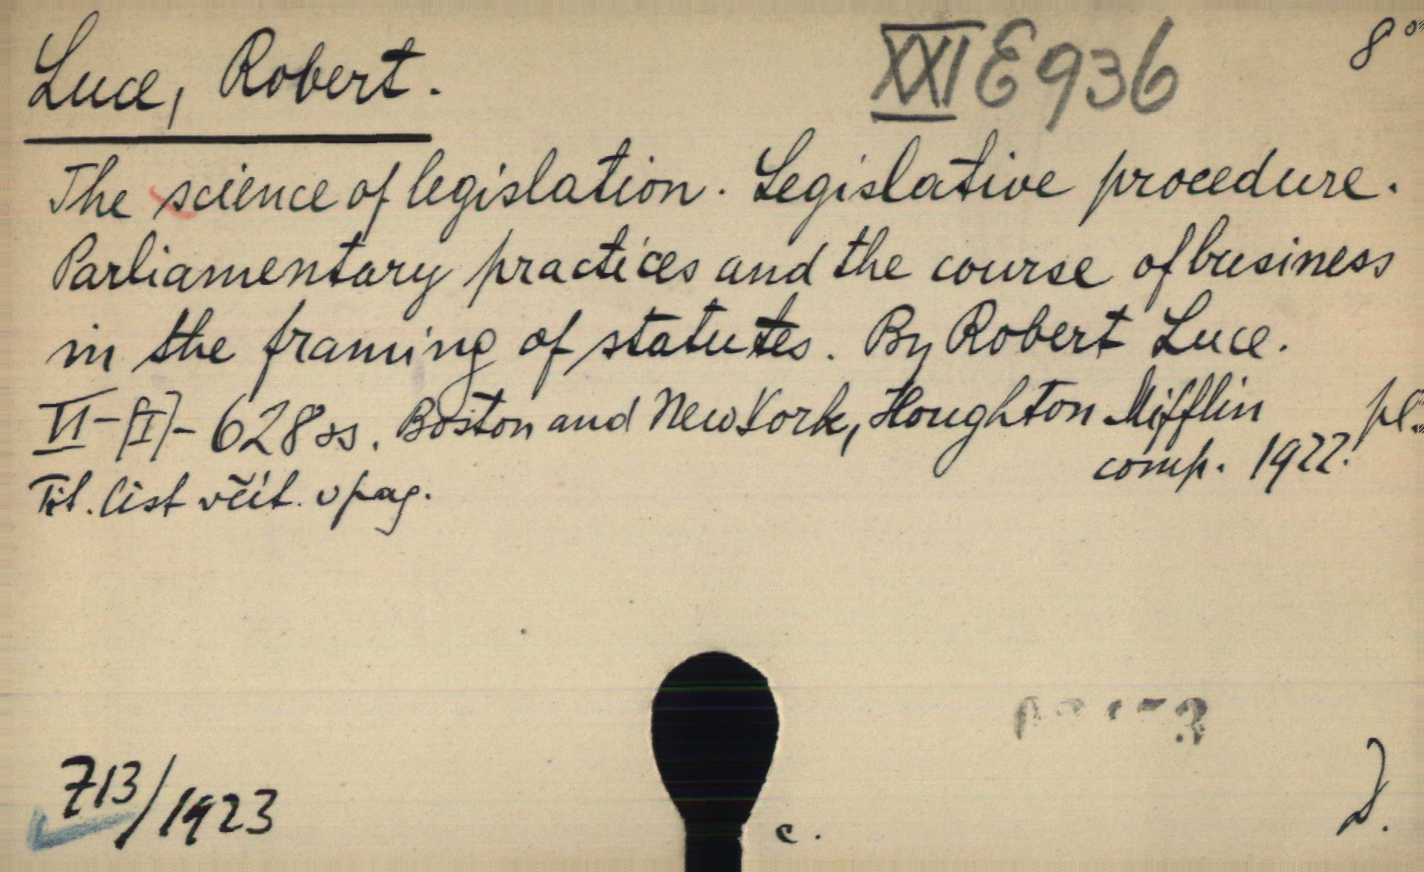 Luce, Robert. XXI E 936 8°
The science of legislation. Legislative procedure.
Parliamentary practices and the course of business
in the framing of statutes. By Robert Luce.
VI-[I]-628 ss. Boston and New York, Houghton Mifflin pl.
comp. 1922.
Tit. list včít. v pag.
713/1923
c.